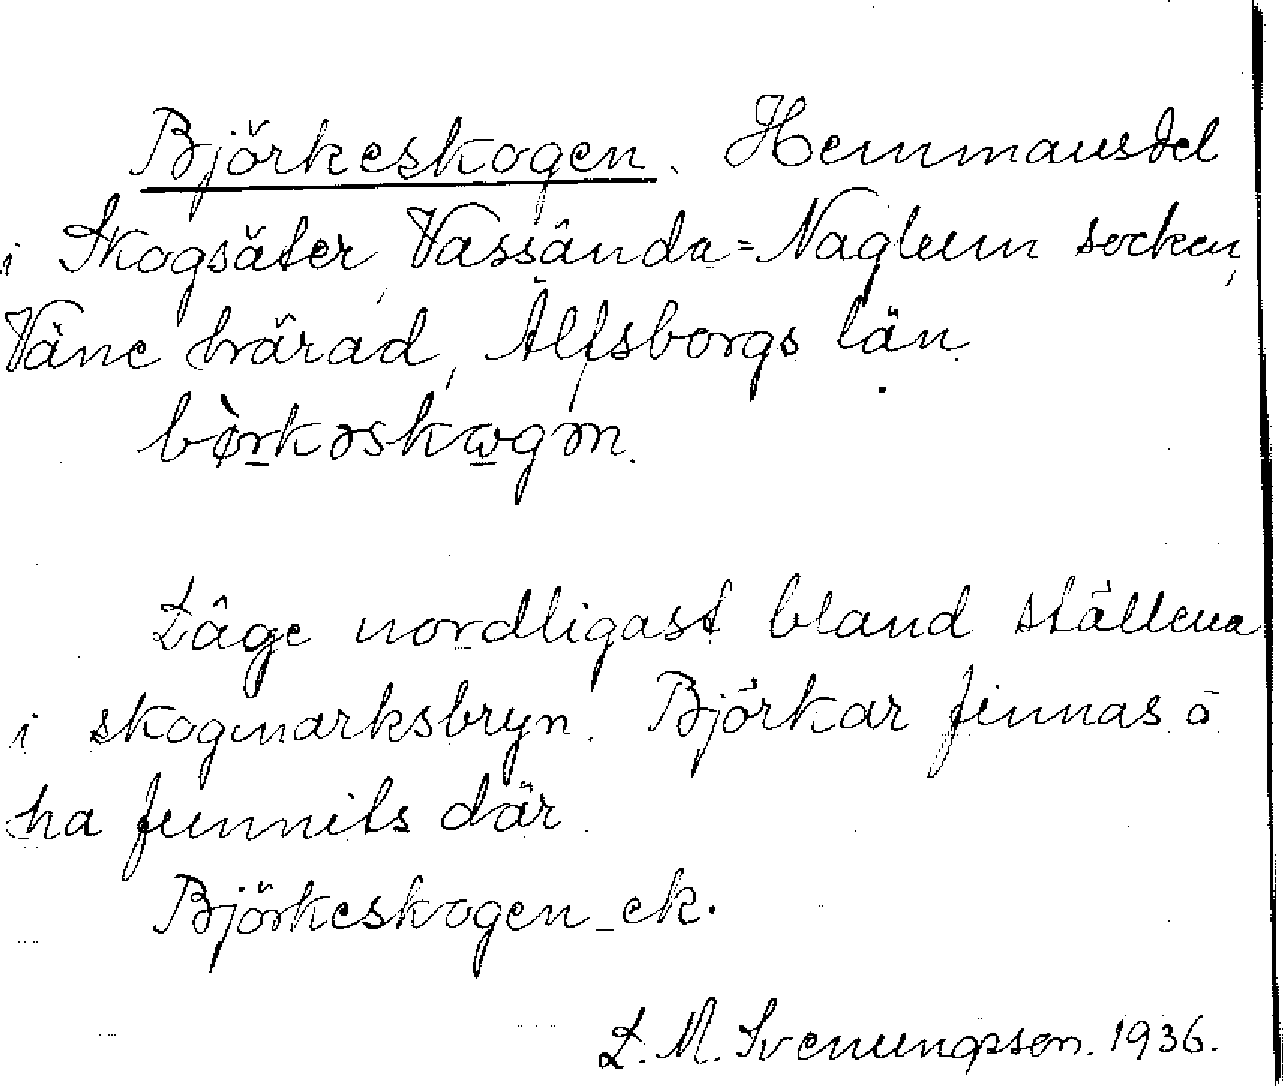 Björkeskogen. Hemmansdel
i Skogsäter, Vassända=Naglum socken,
Väne härad, Älfsborgs län.
bø̀rkəskɷgən.
Läge nordligast bland ställena
i skogmarksbryn. Björkar finnas o
ha funnits där.
Björkeskogen ek.
L. M. Svenungsson. 1936.